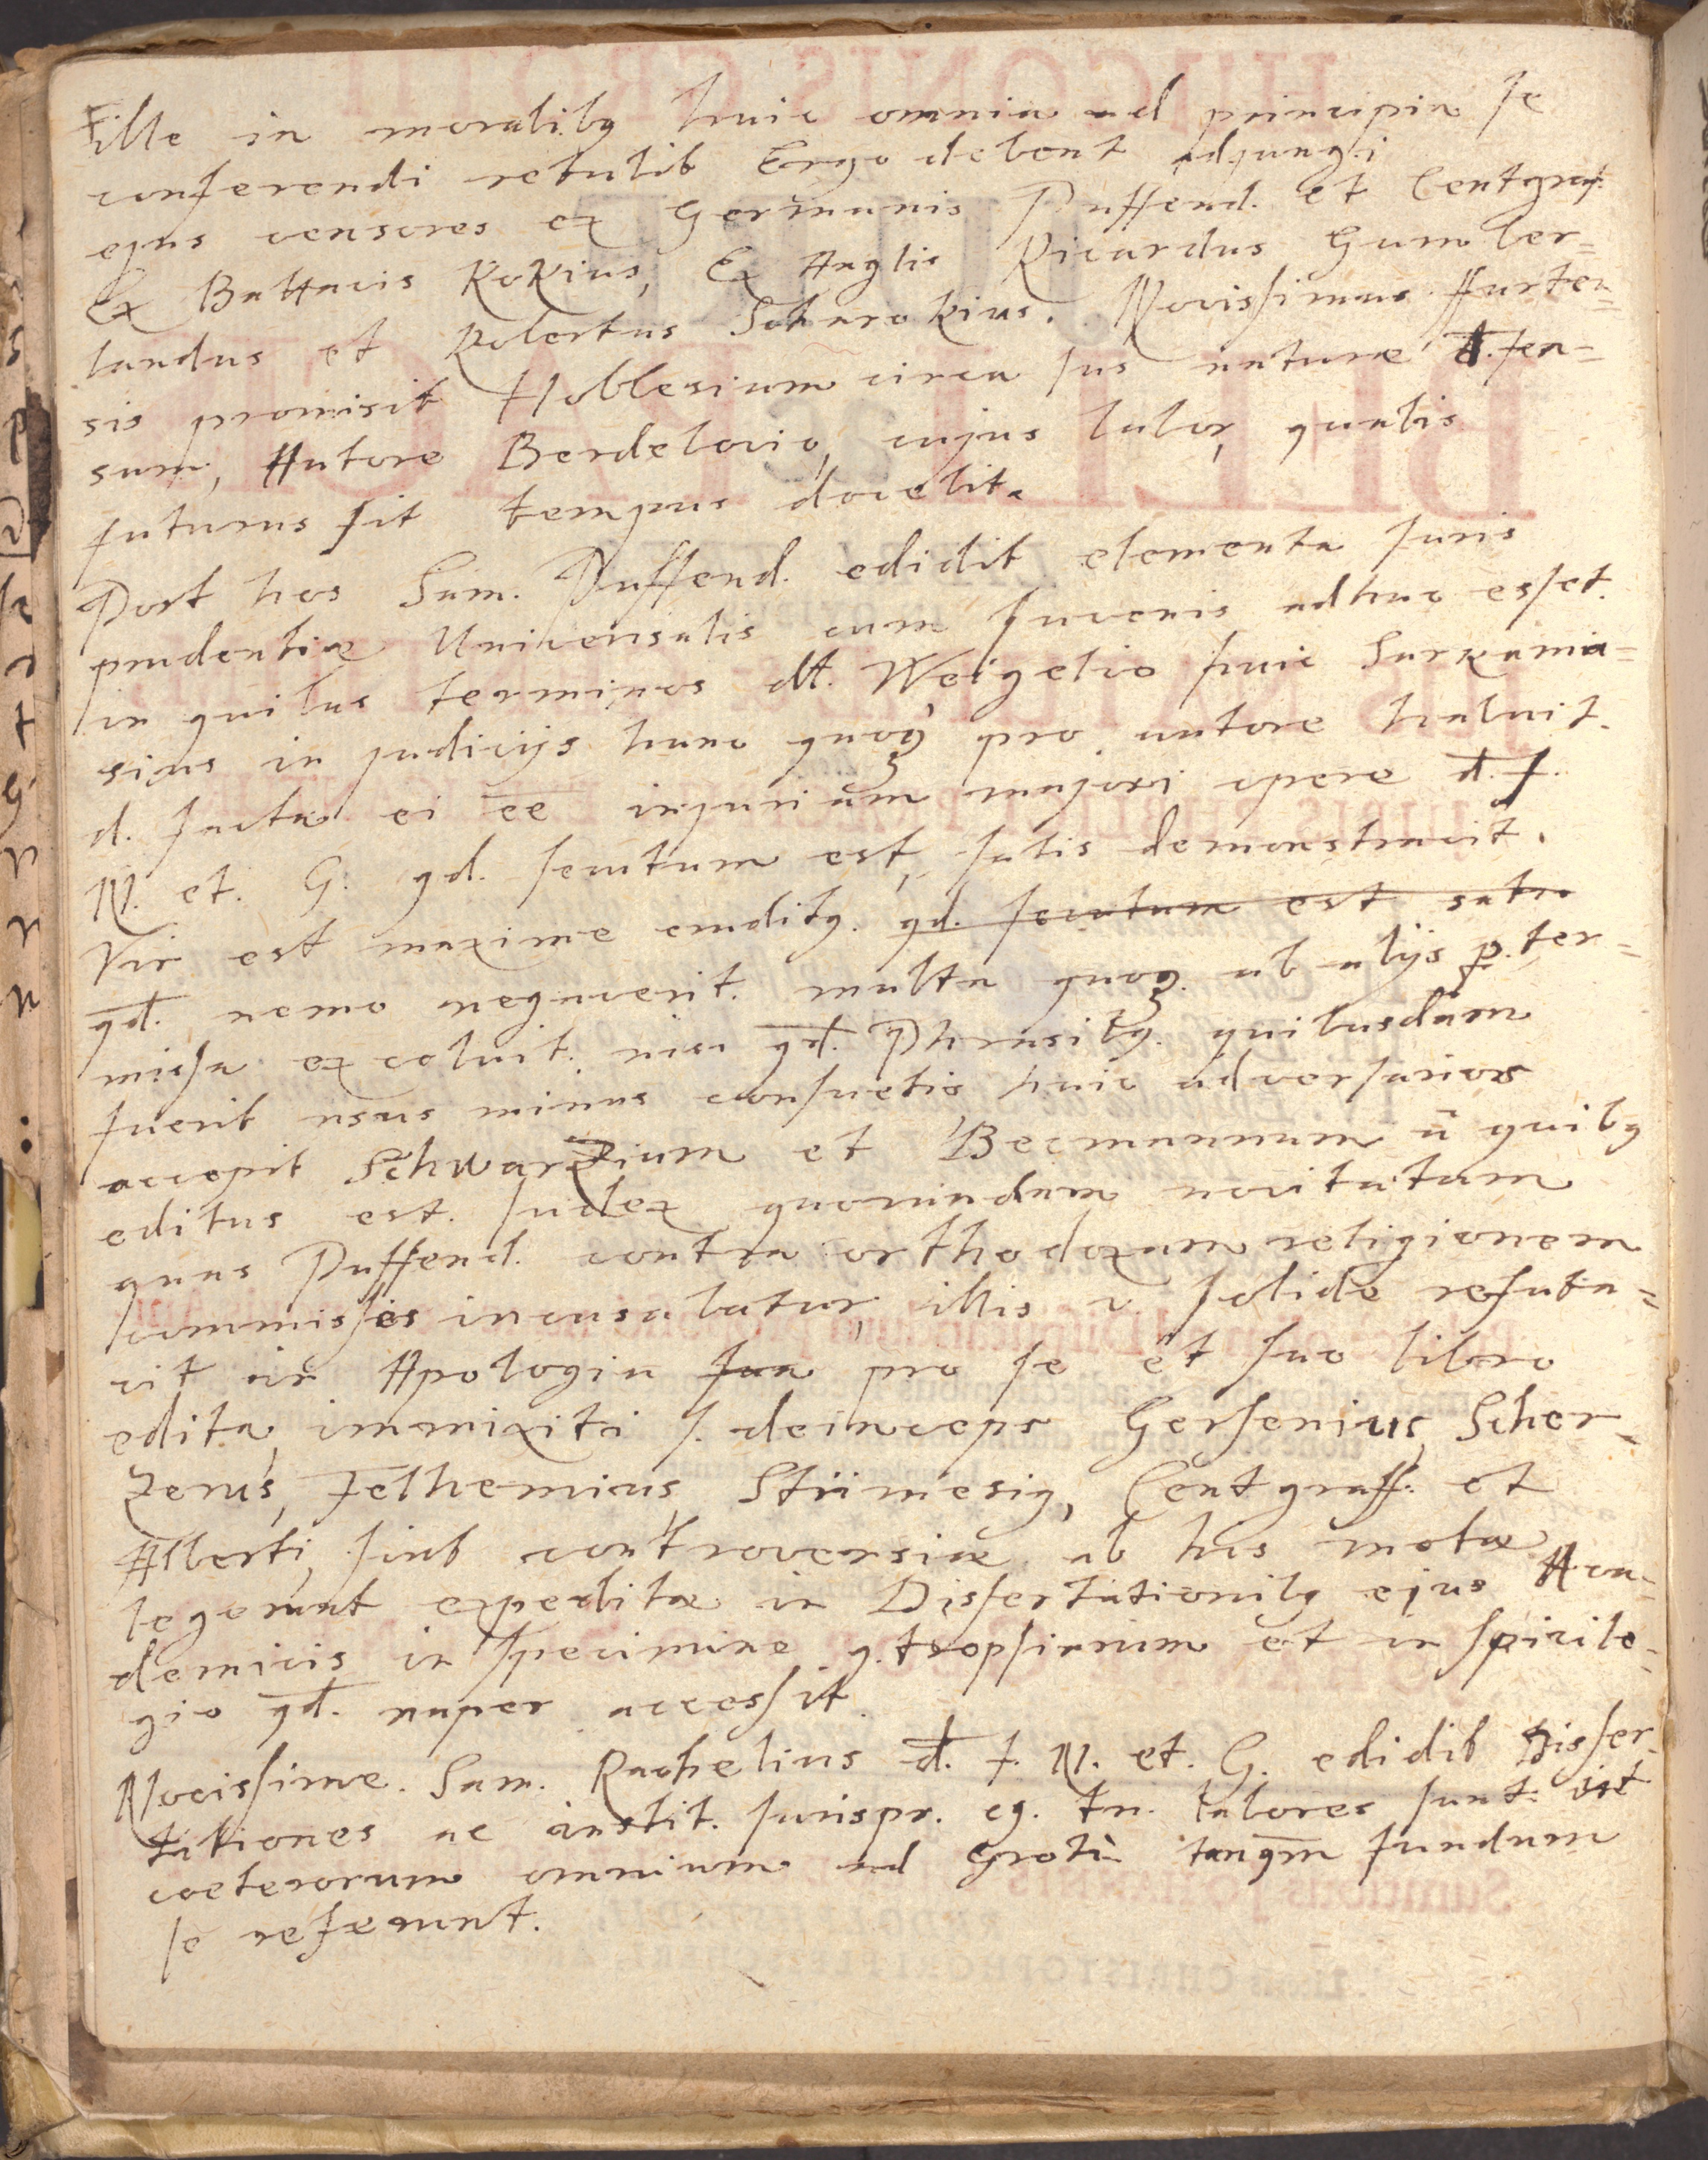 ille in moralibq huic omnia ad principia se
conferendi retulit Ergo debent adjungi
ejus censores ex Germanis Puffend. et Centgraf.
Ex Battavis Kokius, Ex Anglis Ricardus Cumber=
landus et Robertus Scharokius. Novissimus
sis promisit Hobbesium circa Jus naturæ d.fen=
sum, Autore Berdelovio, cujus labor, qualis
futurus sit tempus docebit.
Post hos Sam. Puffend. edidit elementa Juris
prudentiæ Universalis cum Juvenis adhuc esset.
in quibus terminos Weigelio huic
sius in judicijs hunc quoq pro autore habuit.
d. facta ei ēē injuriam majori opere d. J.
N. et. G. qd. secutum est, satis demonstravit.
Vir est maxime erudity. qd. secutum est satis
qd. nemo negaverit. multa quoq. ab alijs p.ter=
missa excoluit. nisi qd. Phrasibq. quibusdam
fuerit usus minus consuetis, huic adversarios
accepit Schwarzium et Becmannum ū quibq
editus est. Index quorundam novitatum
quas Puffend. contra orthodoxam religionem
commisses incusabatur, illis v. solide refuta=
vit in Apologia sua pro se et suo libro
edita, immixiti s. deinceps Gersenius, Scher=
zerus, Felthemius, Strimesiq, Centgraff. et
Alberti, sint controversiæ ab his motæ
legerunt expeditæ in Dissertationibq ejus Aca=
demicis in specimine et in spicile=
gio qd. nuper accessit.
Novissime. Sam. Rachelius d. J. N. et. G. edidit Disser=
tationes ac instit. Jurispr. eq. tn. labores sunt. vit
coeterorum omnium ad Groti tanqm fundum
se referunt.